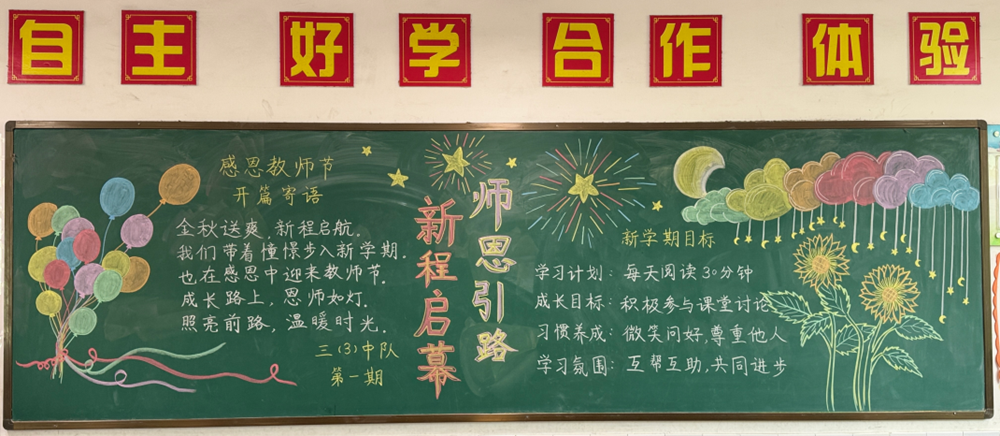 自主 好学 合作 体验
感恩教师节
开篇寄语
金秋送爽,新程启航.
我们带着憧憬步入新学期.
也在感恩中迎来教师节.
成长路上,恩师如灯.
照亮前路,温暖时光.
三(3)中队
第一期
师恩引路
新程启幕
新学期目标
学习计划:每天阅读30分钟
成长目标:积极参与课堂讨论
习惯养成:微笑问好,尊重他人
学习氛围:互帮互助,共同进步